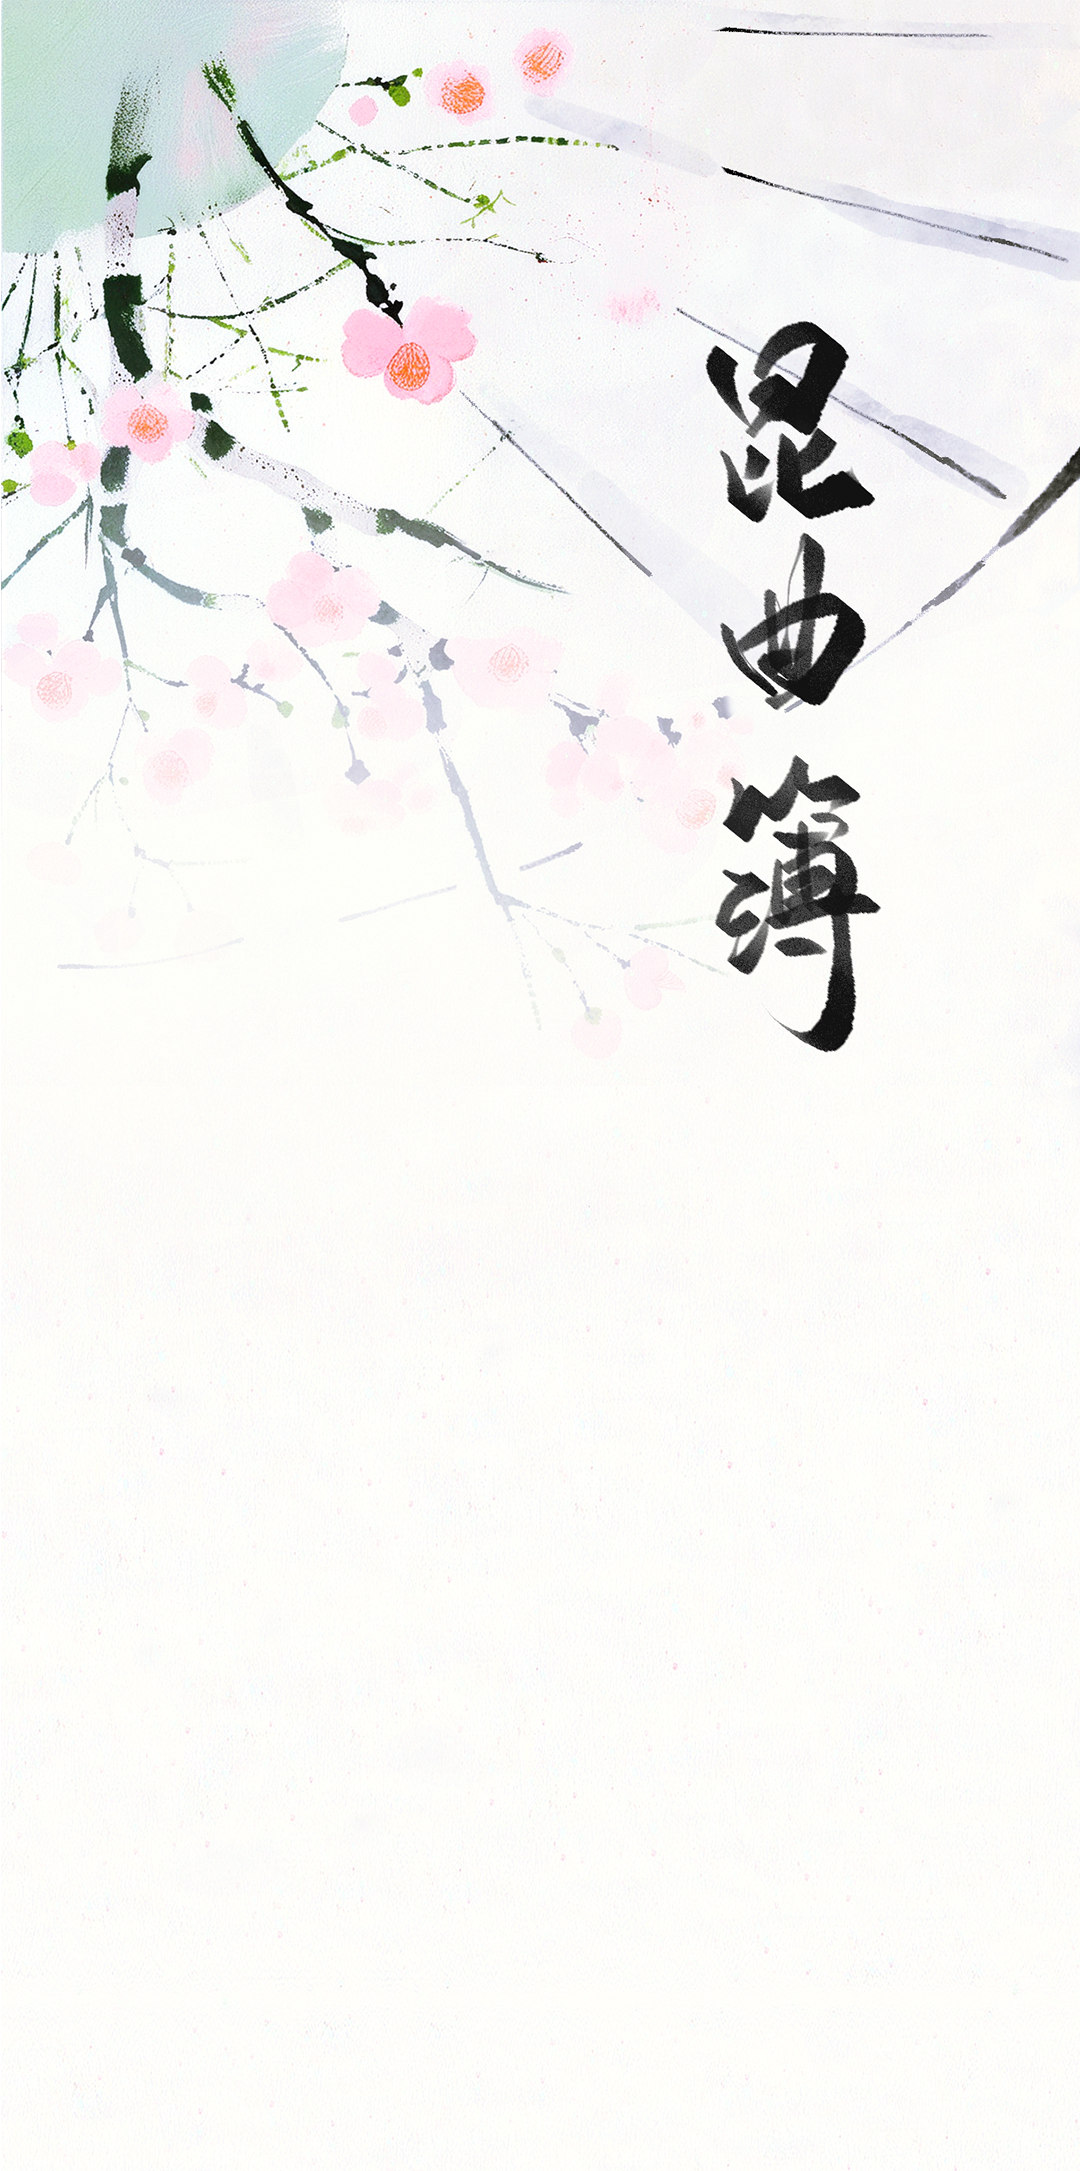 昆曲簿